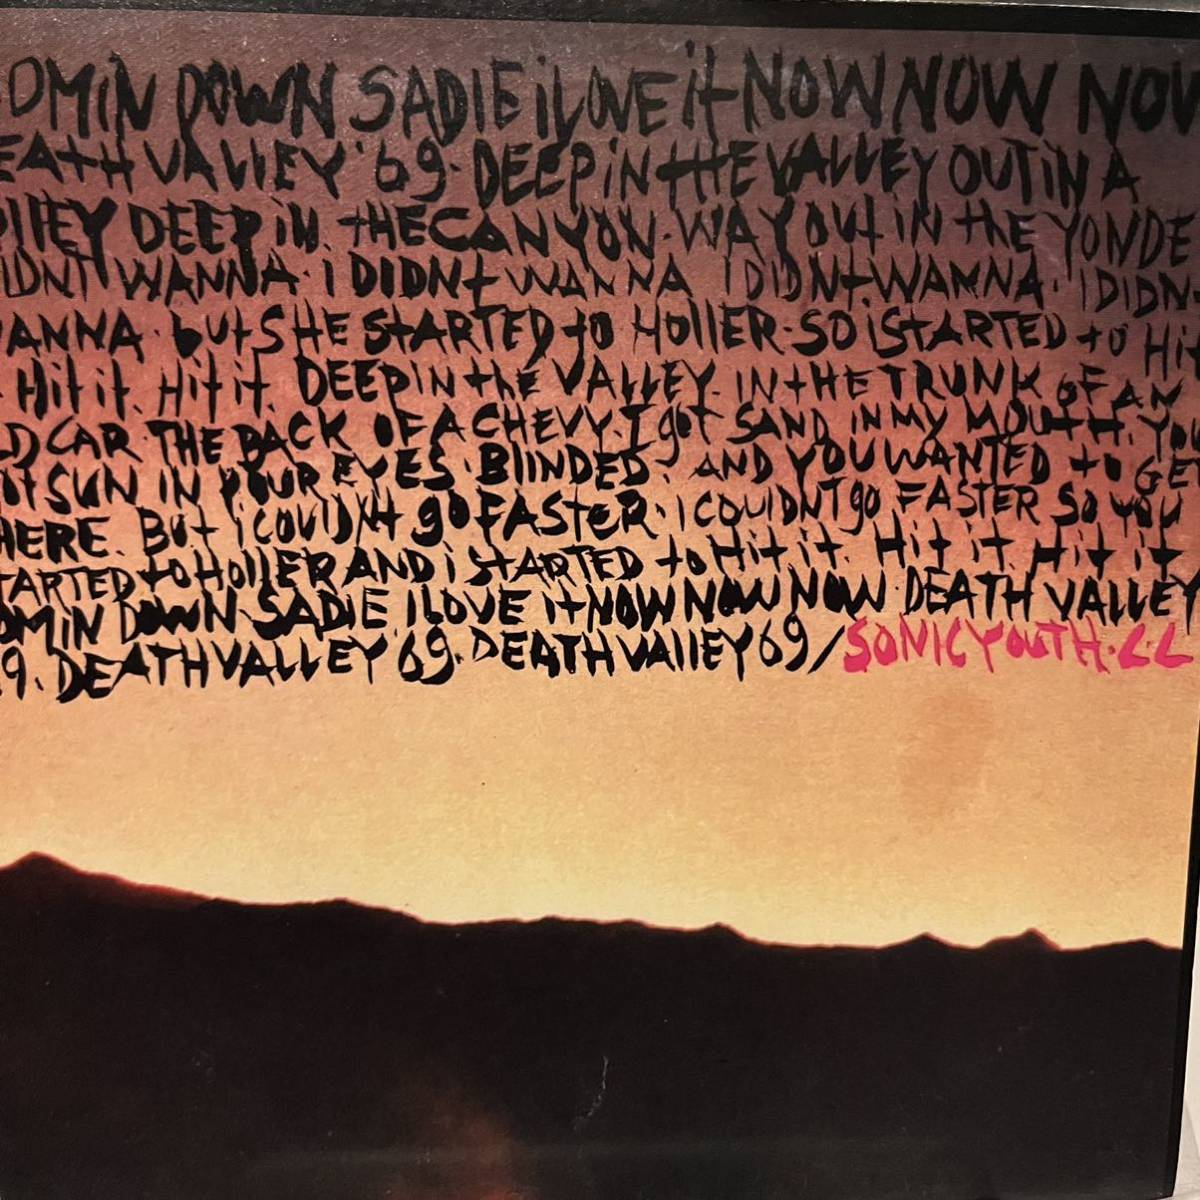 OMiN DOWN SADIE iLOVE it NOW NOW NOW
EAtH VAllEY '69. DEEP iN tHE VALLEY OUT iN A
llEY DEEP iN. tHE CANYON. WAY OUt iN tHE YONDE
IDNT WANNA. I DIDNt WANNA I DIDNt WANNA. I DIDN
ANNA. bUt SHE StARTED tO HOllER. SO iStARTED tO Hit
Hit it. Hit it. DEEP iN thE VALLEY. IN tHE TRUNK OF AN
LD CAR. THE BACK OF A CHEVY I gOT SAND IN MY MOUtH. YOU
Ot SUN IN YOUR EYES. BlINDED. AND YOU WANTED tO GET
HERE. BUt iCOUlDNt gO FASTER. I COUlDNT gO FASTER SO YOU
TARTED tO HOllER AND i StARTED tO Hit it. Hit it Hit it
OMiN DOWN SADIE ILOVE it NOW NOW NOW DEATH VALLEY
9. DEATH VALLEY '69. DEATH VAllEY 69/SONIC YOUTH. L.L